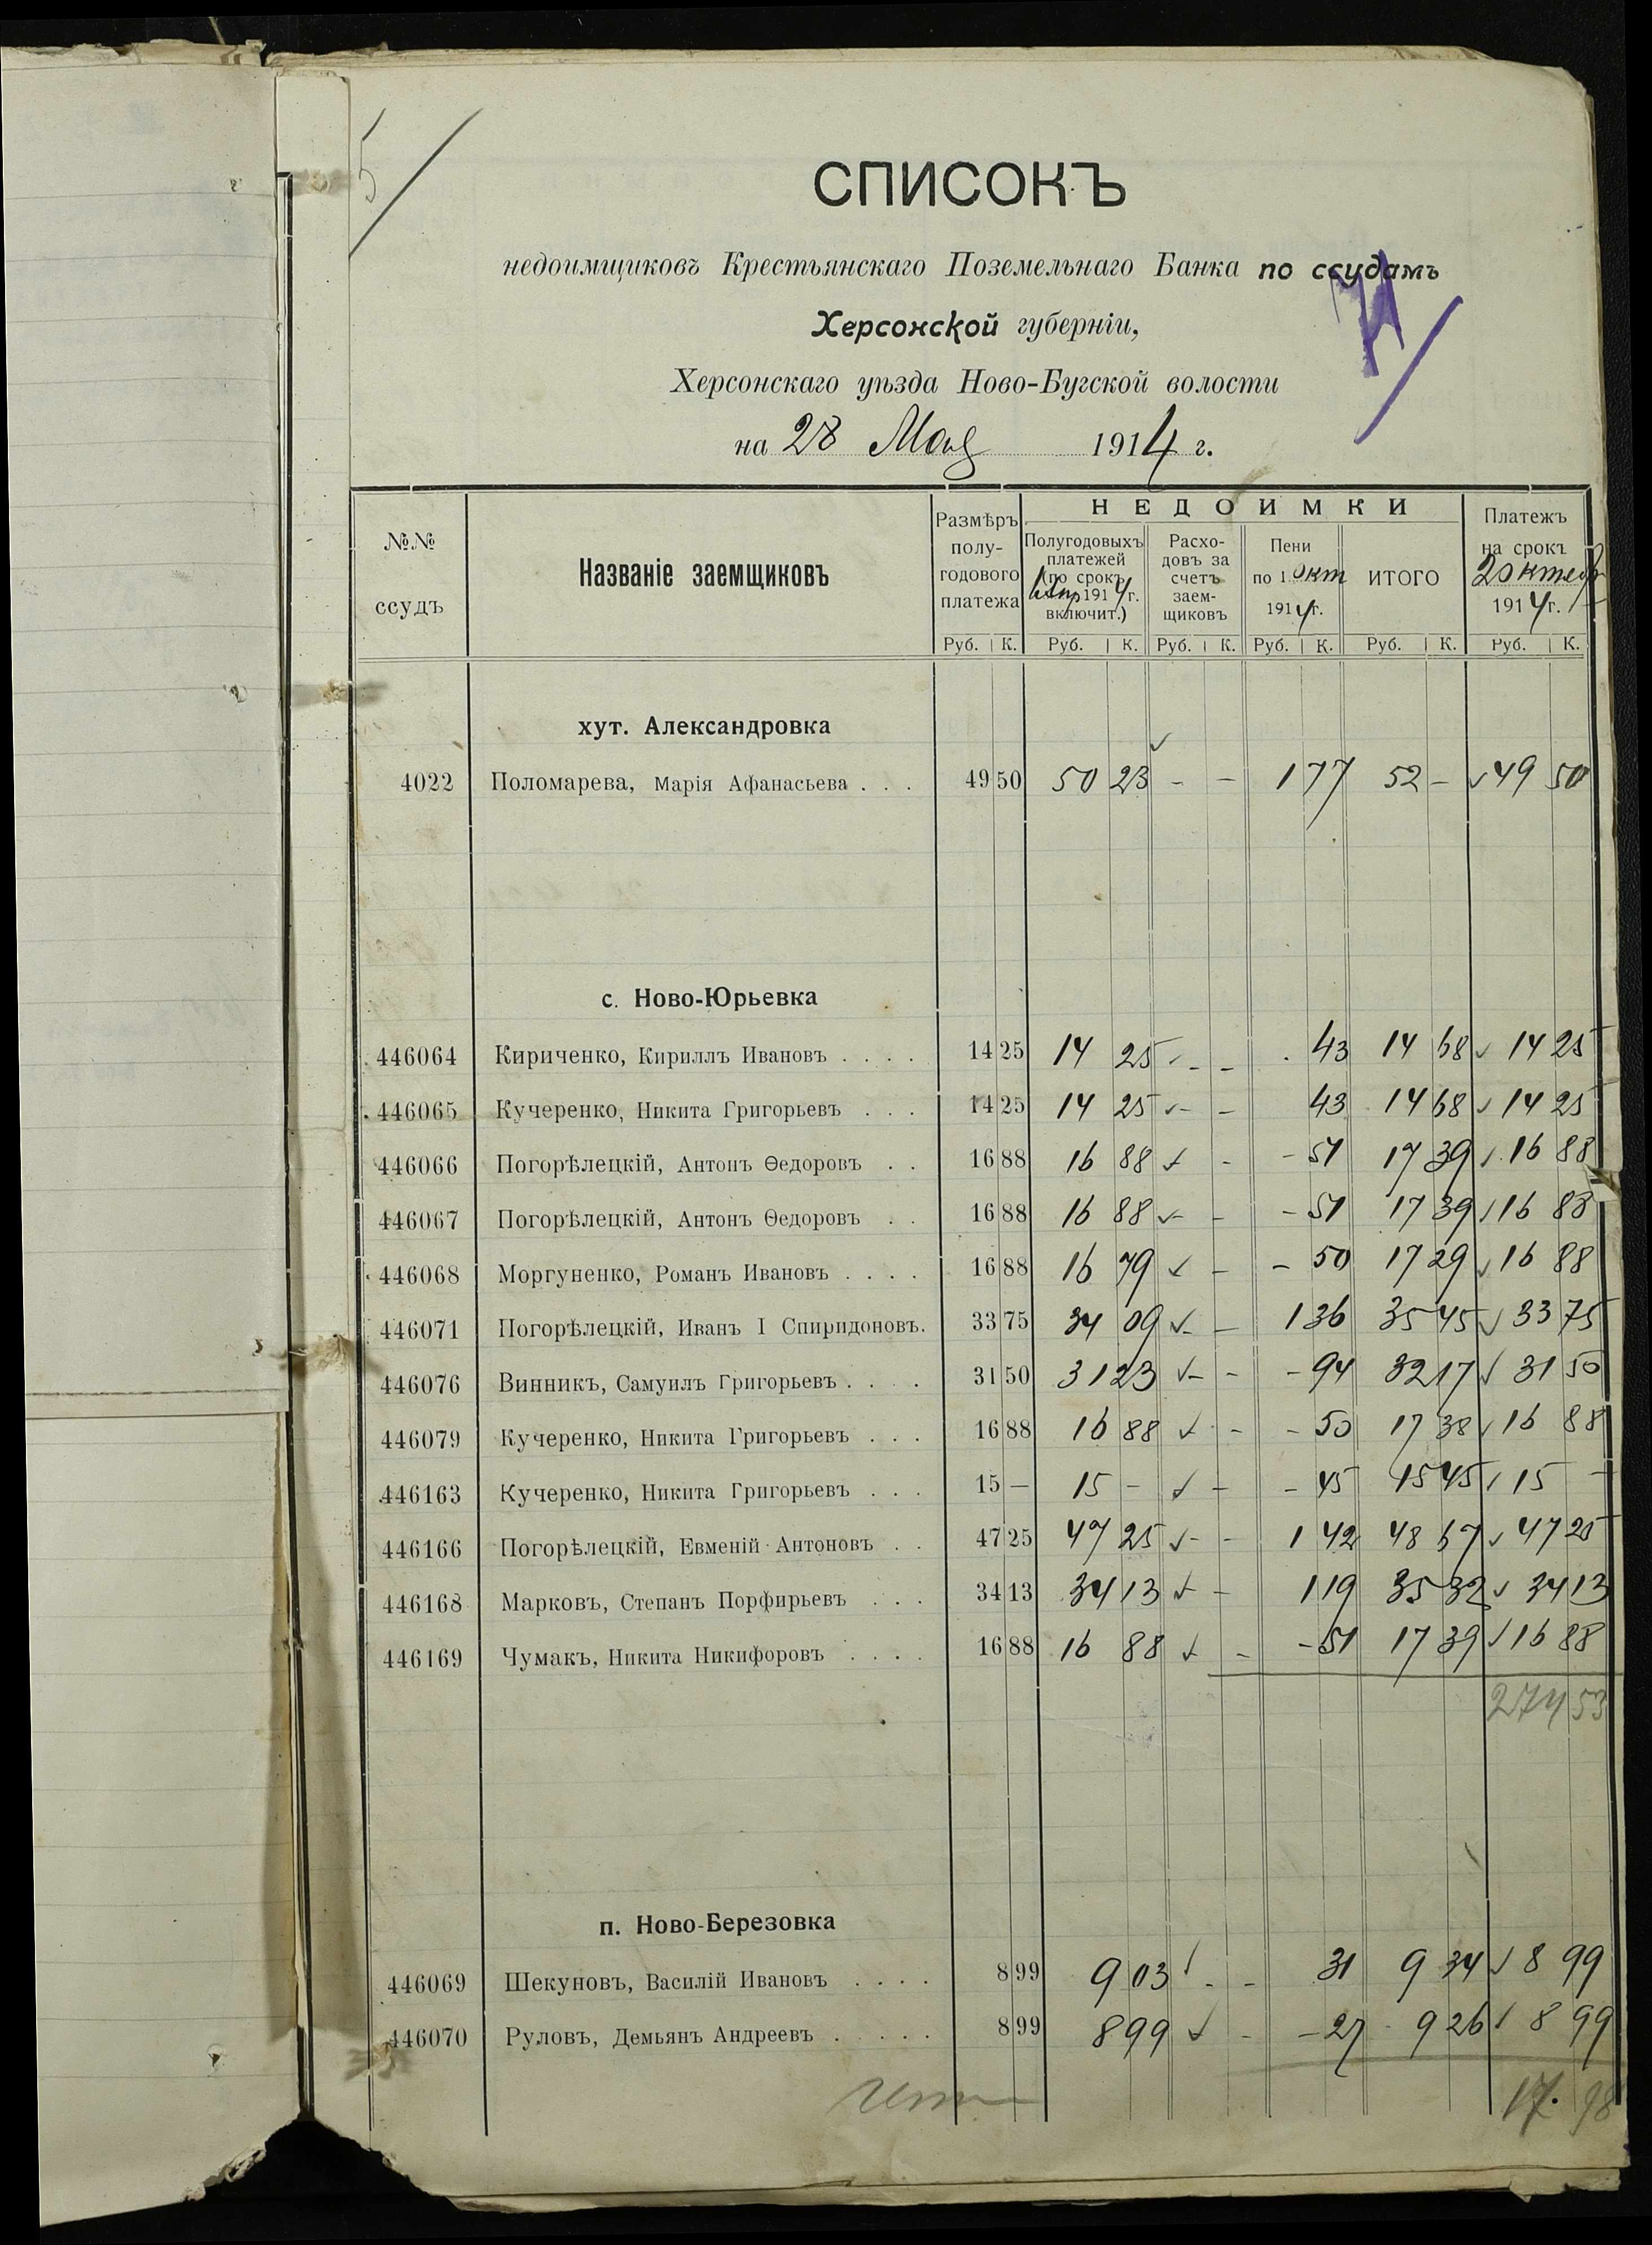 5
СПИСОКЪ
недоимщиковъ Крестьянскаго Поземельнаго Банка по ссудамъ
Херсонской губерніи,
Херсонскаго уѣзда Ново-Бугской волости
на 28 Мая 1914 г.
№№ ссудъ
Названіе заемщиковъ
Размѣръ полу-годового платежа
НЕДОИМКИ
Полугодовыхъ платежей (по срокъ 1 Апр 1914 г. включит.)
Расхо-довъ за счетъ заем-щиковъ
Пени по 1 Окт 1914 г.
ИТОГО
Платежъ на срокъ Октября 1914 г.
Руб. К. Руб. К. Руб. К. Руб. К. Руб. К. Руб. К.
хут. Александровка
4022 Поломарева, Марія Афанасьева . . . 49 50 50 23 - - 1 77 52 - 49 50
с. Ново-Юрьевка
446064 Кириченко, Кириллъ Ивановъ . . . . 14 25 14 25 - - 43 14 68 14 25
446065 Кучеренко, Никита Григорьевъ . . . 14 25 14 25 - - 43 14 68 14 25
446066 Погорѣлецкій, Антонъ Ѳедоровъ . . 16 88 16 88 - - 51 17 39 16 88
446067 Погорѣлецкій, Антонъ Ѳедоровъ . . 16 88 16 88 - - - 51 17 39 16 88
446068 Моргуненко, Романъ Ивановъ . . . . 16 88 16 79 - - 50 17 29 16 88
446071 Погорѣлецкій, Иванъ I Спиридоновъ. 33 75 34 09 - - 1 36 35 45 33 75
446076 Винникъ, Самуилъ Григорьевъ . . . . 31 50 31 23 - - - 94 32 17 31 50
446079 Кучеренко, Никита Григорьевъ . . . 16 88 16 88 - - 50 17 38 16 88
446163 Кучеренко, Никита Григорьевъ . . . 15 — 15 - - - 45 15 45 15 -
446166 Погорѣлецкій, Евменій Антоновъ . . 47 25 47 25 - - 1 42 48 67 47 25
446168 Марковъ, Степанъ Порфирьевъ . . . 34 13 34 13 - 1 19 35 32 34 13
446169 Чумакъ, Никита Никифоровъ . . . . 16 88 16 88 - - 51 17 39 16 88
274 53
п. Ново-Березовка
446069 Шекуновъ, Василій Ивановъ . . . . 8 99 9 03 - - 31 9 34 8 99
446070 Руловъ, Демьянъ Андреевъ . . . . . 8 99 8 99 - - 27 9 26 8 99
17. 98